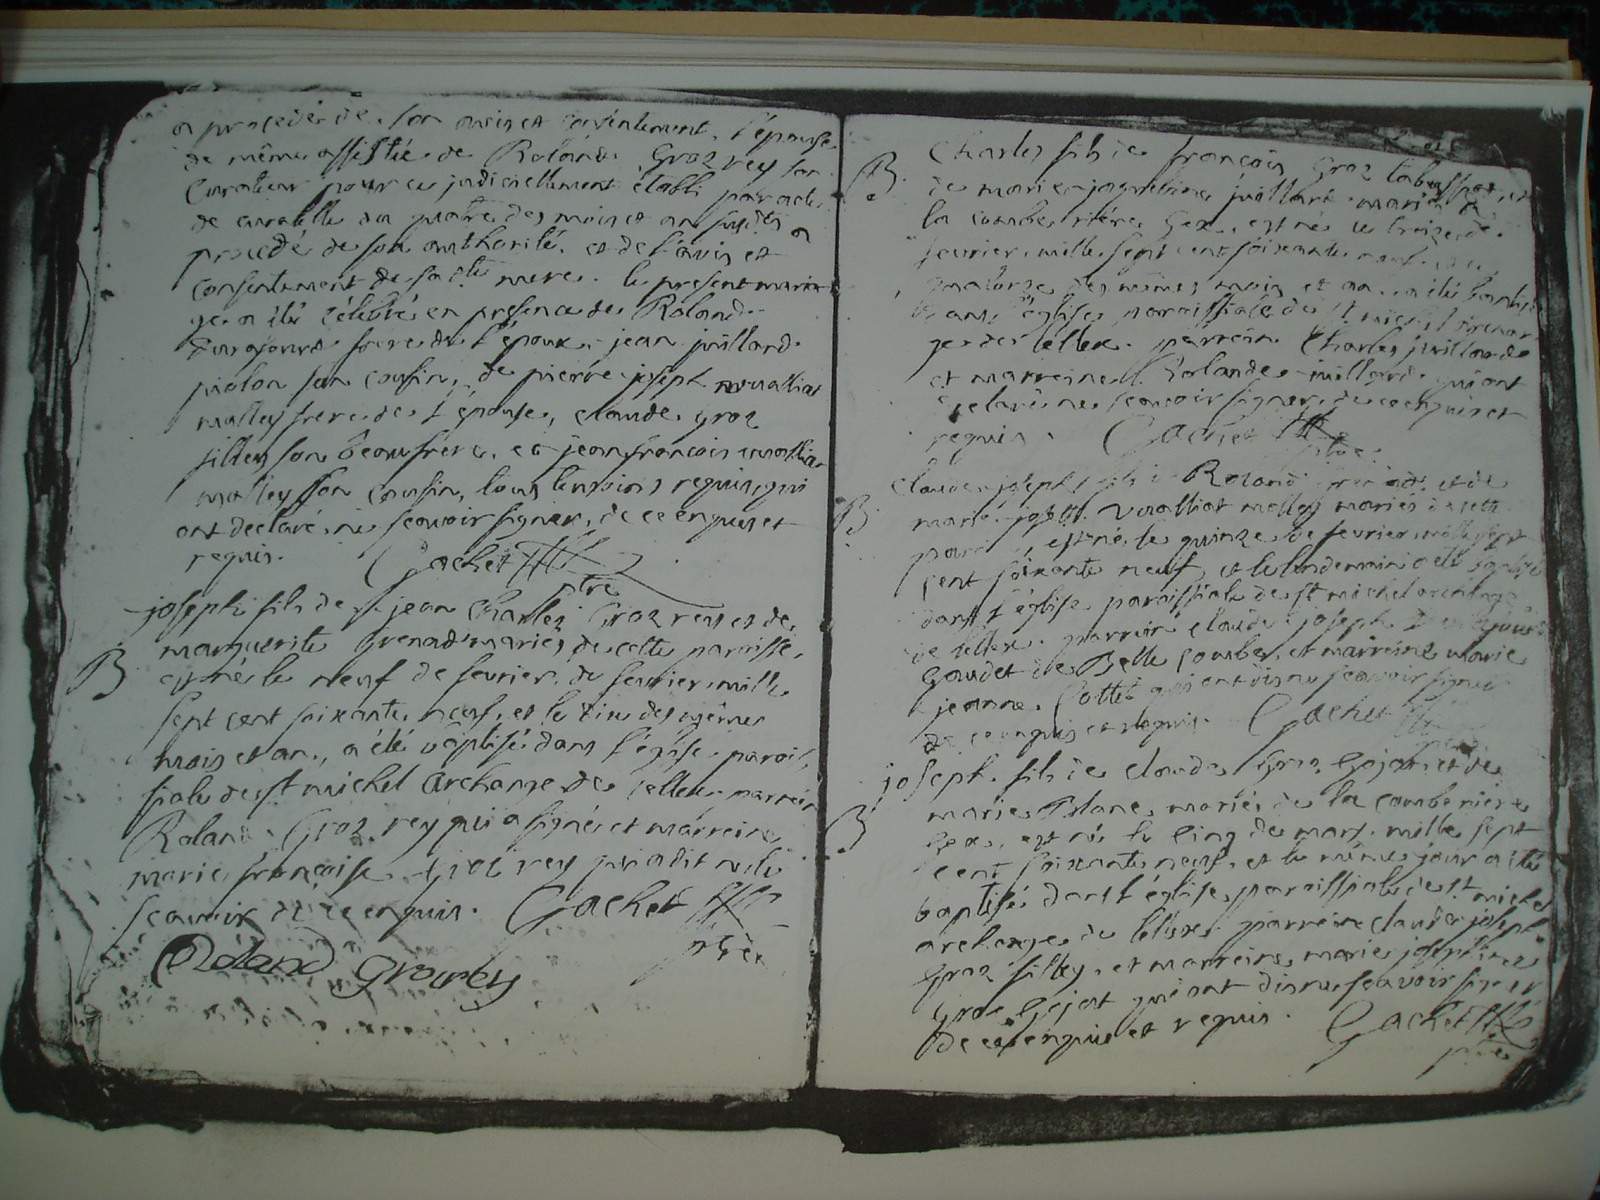 a procedé de son avis et consentement. l'épouse
de même assistée de Roland Groz rey son
curateur pour ce judiciellement établi par acte
de curatelle du quatre des mois et an susdits a
procedé de son authorité, et de l'avis et
consentement de sa dte mere. le present maria
ge a été célébré en presence de Roland
frere de l'époux, jean juillard
son cousin, de pierre joseph vuaillat
malley frere de l'épouse, claude groz
filley son beaufrere, et jean françois vuaillat
malley son cousin, tous temoins requis, qui
ont declaré ne scavoir signer, de ce enquis et
requis. Gachet
ptre
joseph fils de jean Charles Groz rey et de
marguerite Grenard mariés de cette paroisse,
B est né le neuf de fevrier, de fevrier mille
sept cent soixante neuf, et le dix des mêmes
mois et an, a été baptisé dans l'église parois
siale de st michel archange de lellex. parrein
Roland Groz rey qui a signé et marreine
marie françoise Groz rey qui a dit ne le
scavoir de ce enquis. Gachet
ptre
Roland Growrey
B Charles fils de françois Groz et
de marie jaqueline juillard mariés de
la combe riére Gex, est né le treize de
fevrier mille sept cent soixante neuf, et le
quatorze des mêmes mois et an a été baptisé
dans l'église paroissiale de st michel archan
ge de lellex. parrein Charles juillard
et marreine Rolande juillard qui ont
declaré ne scavoir signer, de ce enquis et
requis. Gachet
ptre
claude joseph fils de Roland et de
B marie joseph vuaillat malley mariés de cette
paroisse, est né le quinze de fevrier mille sept
cent soixante neuf, et le lendemain a été baptisé
dans l'église paroissiale de st michel archange
de lellex. parrein claude joseph
Goudet de Belle combe, et marreine marie
jeanne Cottet qui ont dis ne scavoir signer
de ce enquis et requis. Gachet
ptre
joseph fils de claude Groz Gojat et de
marie Blanc mariés de la combe riére
B Gex, est né le cinq de mars mille sept
cent soixante neuf, et le même jour a été
baptisé dans l'église paroissiale de st michel
archange de lellex. parrein claude joseph
Groz filley, et marreine marie josephte
Groz Gojat qui ont dis ne scavoir signer
de ce enquis et requis. Gachet
ptre